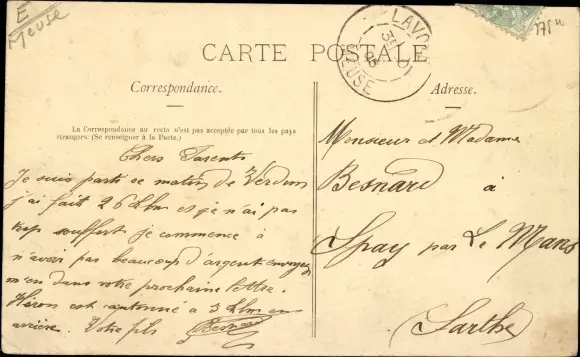 E
Meuse
175
LAVO
MEUSE
CARTE POSTALE
Correspondance.
Adresse.
La Correspondance au recto n'est pas acceptée par tous les pays
étrangers. (Se renseigner à la Poste.)
Chers Parents
Je suis parti se matin de Verdun
j'ai fait 26 klm et je n'ai pas
trop souffert je commence à
n'avoir pas beaucoup d'argent envoyez
m'en dans votre prochaine lettre.
Héron est cantonné à 3 klm en
arrière. Votre fils Besnard
Monsieur et Madame
Besnard à
Spay par Le Mans
Sarthe